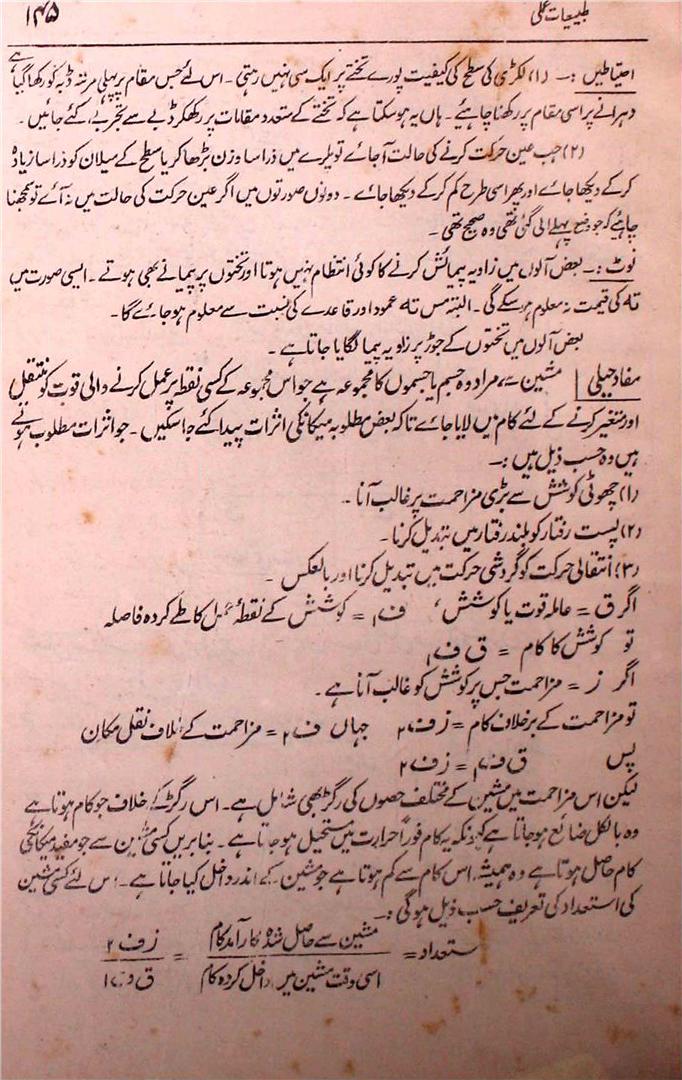 طبیعات عملی
۱۴۵
احتیاطیں :۔ (۱) لکڑی کی سطح کی کیفیت پورے تختے پر ایک سی نہیں رہتی ۔ اس لئے جس مقام پر پہلی مرتبہ ڈبہ کو رکھا گیا ہے
دہرانے پر اسی مقام پر رکھنا چاہیے ۔ ہاں یہ ہوسکتا ہے کہ تختے کے متعدد مقامات پر رکھکر ڈبے سے تجربے کئے جائیں ۔
(۲) جب عین حرکت کرنے کی حالت آجائے تو پلڑے میں ذرا سا وزن بڑھا کر یا سطح کے میلان کو ذرا سا زیادہ
کرکے دیکھا جائے اور پھر اسی طرح کم کرکے دیکھا جائے ۔ دونوں صورتوں میں اگر عین حرکت کی حالت میں نہ آئے تو سمجھنا
چاہیے کہ جو پہلے لی گئی تھی وہ صحیح تھی ۔
نوٹ :۔ بعض آلوں میں زاویہ پیمائش کرنے کا کوئی انتظام نہیں ہوتا اور تختوں پر پیمانے بھی ہوتے ۔ ایسی صورت میں
تہ کی قیمت نہ معلوم ہوسکے گی ۔ البتہ مس تہ عمود اور قاعدے کی نسبت سے معلوم ہوجائے گا ۔
بعض آلوں میں تختوں کے جوڑ پر زاویہ پیما لگایا جاتا ہے ۔
مفاد حیلی | مشین سے مراد وہ جسم یا جسموں کا مجموعہ ہے جو اس مجموعہ کے کسی نقطہ پر عمل کرنے والی قوت کو منتقل
اور متغیر کرنے کے لئے کام میں لایا جائے تاکہ بعض مطلوبہ میکانکی اثرات پیدا کئے جاسکیں ۔ جو اثرات مطلوب ہوتے
ہیں وہ حسب ذیل ہیں :۔
(۱) چھوٹی کوشش سے بڑی مزاحمت پر غالب آنا ۔
(۲) پست رفتار کو بلند رفتار میں تبدیل کرنا ۔
(۳) انتقالی حرکت کو گردشی حرکت میں تبدیل کرنا اور بالعکس ۔
اگر ق = عاملہ قوت یا کوشش ، ف۱ = کوشش کے نقطۂ عمل کا طے کردہ فاصلہ
تو کوشش کا کام = ق ف۱
اگر ز = مزاحمت جس پر کوشش کو غالب آنا ہے ۔
تو مزاحمت کے برخلاف کام = ز ف۲ جہاں ف۲ = مزاحمت کے خلاف نقل مکان
پس ق ف۱ = ز ف۲
لیکن اس مزاحمت میں مشین کے مختلف حصوں کی رگڑ بھی شامل ہے ۔ اس رگڑ کے خلاف جو کام ہوتا ہے
وہ بالکل ضائع ہوجاتا ہے کیونکہ یہ کام فوراً حرارت میں مستحیل ہوجاتا ہے ۔ بنابریں کسی مشین سے جو مفید میکانکی
کام حاصل ہوتا ہے وہ ہمیشہ اس کام سے کم ہوتا ہے جو مشین کے اندر داخل کیا جاتا ہے ۔ اس لئے کسی مشین
کی استعداد کی تعریف حسب ذیل ہوگی :۔
استعداد = مشین سے حاصل شدہ کارآمد کام = ز ف۲
اسی وقت مشین میں داخل کردہ کام ق ف۱